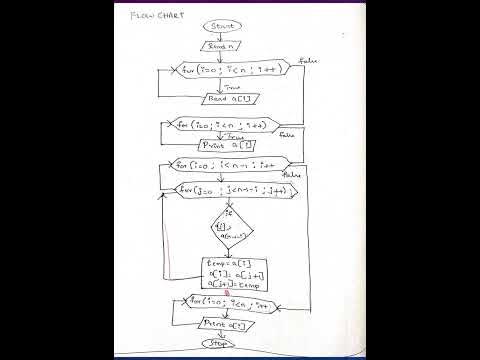 FLOW CHART
Start
Read n
for(i=0; i<n; i++)
false
True
Read a[i]
for(i=0; i<n; i++)
false
True
Print a[i]
for(i=0; i<n-1; i++
false
for(j=0; j<n-1-i; j++)
if
temp=a[i]
a[i]=a[j+1]
a[j+1]=temp
for(i=0; i<n; i++)
Print a[i]
Stop